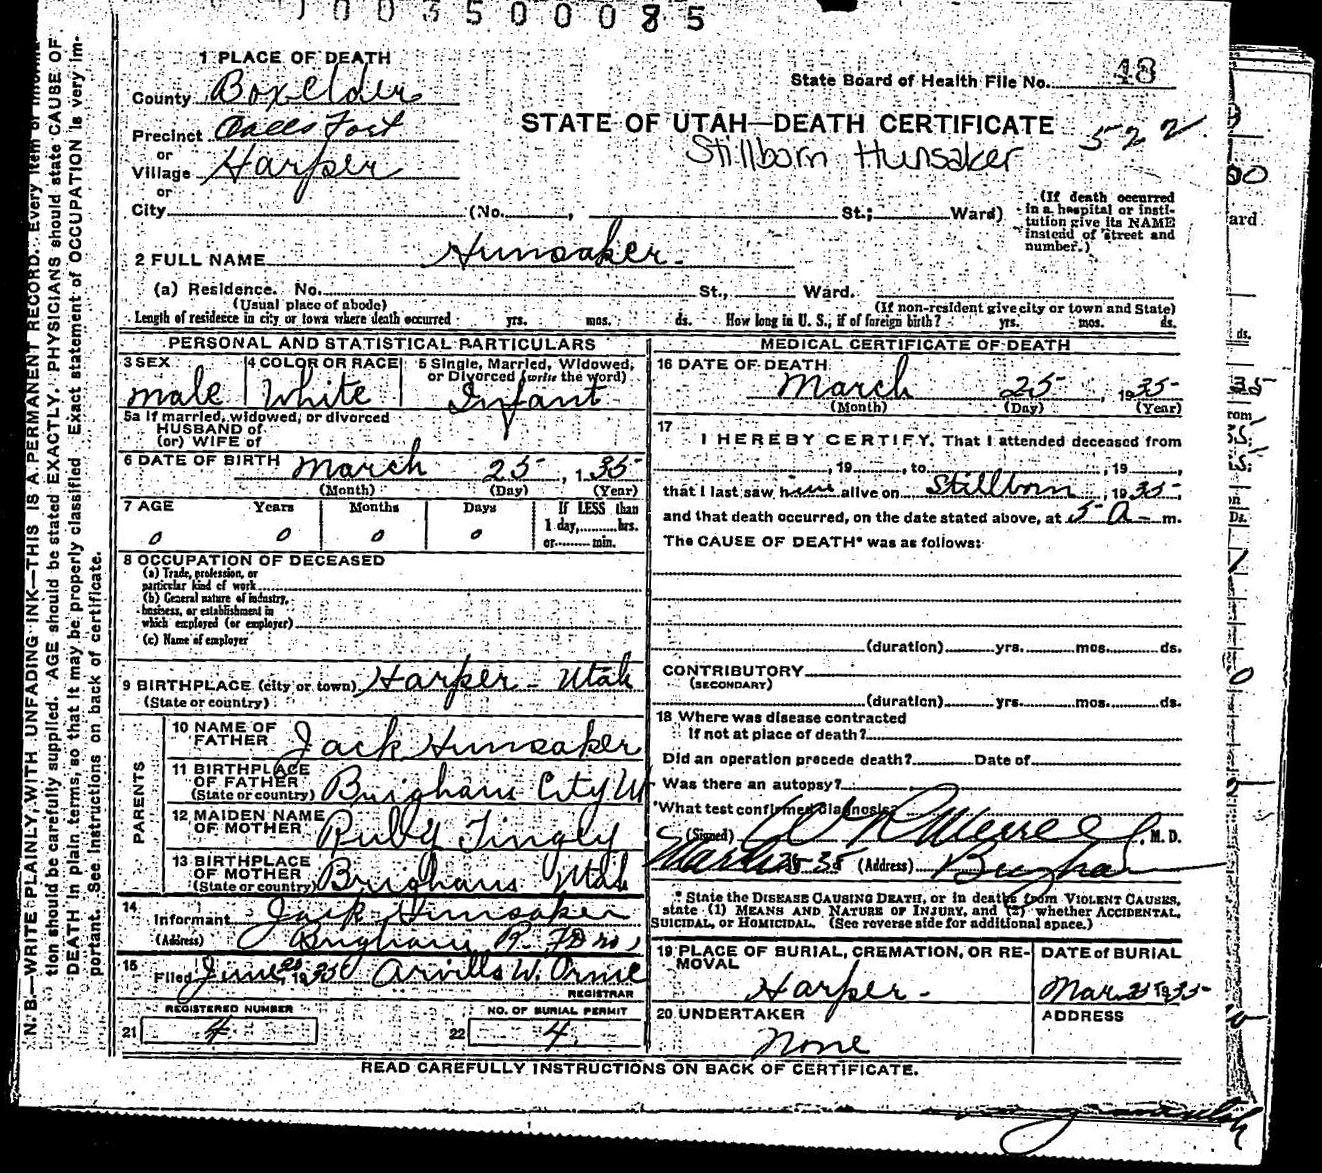 0 0 3 5 0 0 0 8 5
1 PLACE OF DEATH
State Board of Health File No. 48
County Boxelder
STATE OF UTAH—DEATH CERTIFICATE 522
Precinct Calls Fort
Stillborn Hunsaker
or
Village Harper
or
City (No. , St.; Ward)
(If death occurred
in a hospital or insti-
tution give its NAME
instead of street and
number.)
2 FULL NAME Hunsaker.
(a) Residence. No. St., Ward.
(Usual place of abode) (If non-resident give city or town and State)
Length of residence in city or town where death occurred yrs. mos. ds. How long in U. S., if of foreign birth? yrs. mos. ds.
PERSONAL AND STATISTICAL PARTICULARS
3 SEX male
4 COLOR OR RACE White
5 Single, Married, Widowed,
or Divorced (write the word)
Infant
5a If married, widowed, or divorced
HUSBAND of
(or) WIFE of
6 DATE OF BIRTH March 25, 1 35
(Month) (Day) (Year)
7 AGE Years Months Days If LESS than
1 day, hrs.
or min.
0 0 0 0
8 OCCUPATION OF DECEASED
(a) Trade, profession, or
particular kind of work
(b) General nature of industry,
business, or establishment in
which employed (or employer)
(c) Name of employer
9 BIRTHPLACE (city or town) Harper - Utah
(State or country)
PARENTS
10 NAME OF
FATHER Jack Hunsaker
11 BIRTHPLACE
OF FATHER
(State or country) Brigham City Ut
12 MAIDEN NAME
OF MOTHER Ruby Tingly
13 BIRTHPLACE
OF MOTHER
(State or country) Brigham Utah
14
Informant Jack Hunsaker
(Address) Brigham
15 Filed June 1935 Arvilla W. Orme
REGISTRAR
REGISTERED NUMBER NO. OF BURIAL PERMIT
21 4 22 4
MEDICAL CERTIFICATE OF DEATH
16 DATE OF DEATH
March 25, 1935
(Month) (Day) (Year)
17
I HEREBY CERTIFY, That I attended deceased from
, 19 , to , 19 ,
that I last saw him alive on Stillborn, 1935,
and that death occurred, on the date stated above, at 5 a m.
The CAUSE OF DEATH* was as follows:
(duration) yrs. mos. ds.
CONTRIBUTORY
(SECONDARY)
(duration) yrs. mos. ds.
18 Where was disease contracted
If not at place of death?
Did an operation precede death? Date of
Was there an autopsy?
What test confirmed diagnosis?
(Signed) W R Merrell, M. D.
March 25 35 (Address) Brigham
* State the DISEASE CAUSING DEATH, or in deaths from VIOLENT CAUSES,
state (1) MEANS AND NATURE OF INJURY, and (2) whether ACCIDENTAL,
SUICIDAL, or HOMICIDAL. (See reverse side for additional space.)
19 PLACE OF BURIAL, CREMATION, OR RE-
MOVAL
Harper -
DATE of BURIAL
Mar. 25 1935
20 UNDERTAKER
None
ADDRESS
READ CAREFULLY INSTRUCTIONS ON BACK OF CERTIFICATE.
N. B.—WRITE PLAINLY, WITH UNFADING INK—THIS IS A PERMANENT RECORD. Every item of
tion should be carefully supplied. AGE should be stated EXACTLY. PHYSICIANS should state CAUSE OF
DEATH in plain terms, so that it may be properly classified. Exact statement of OCCUPATION is very im-
portant. See instructions on back of certificate.